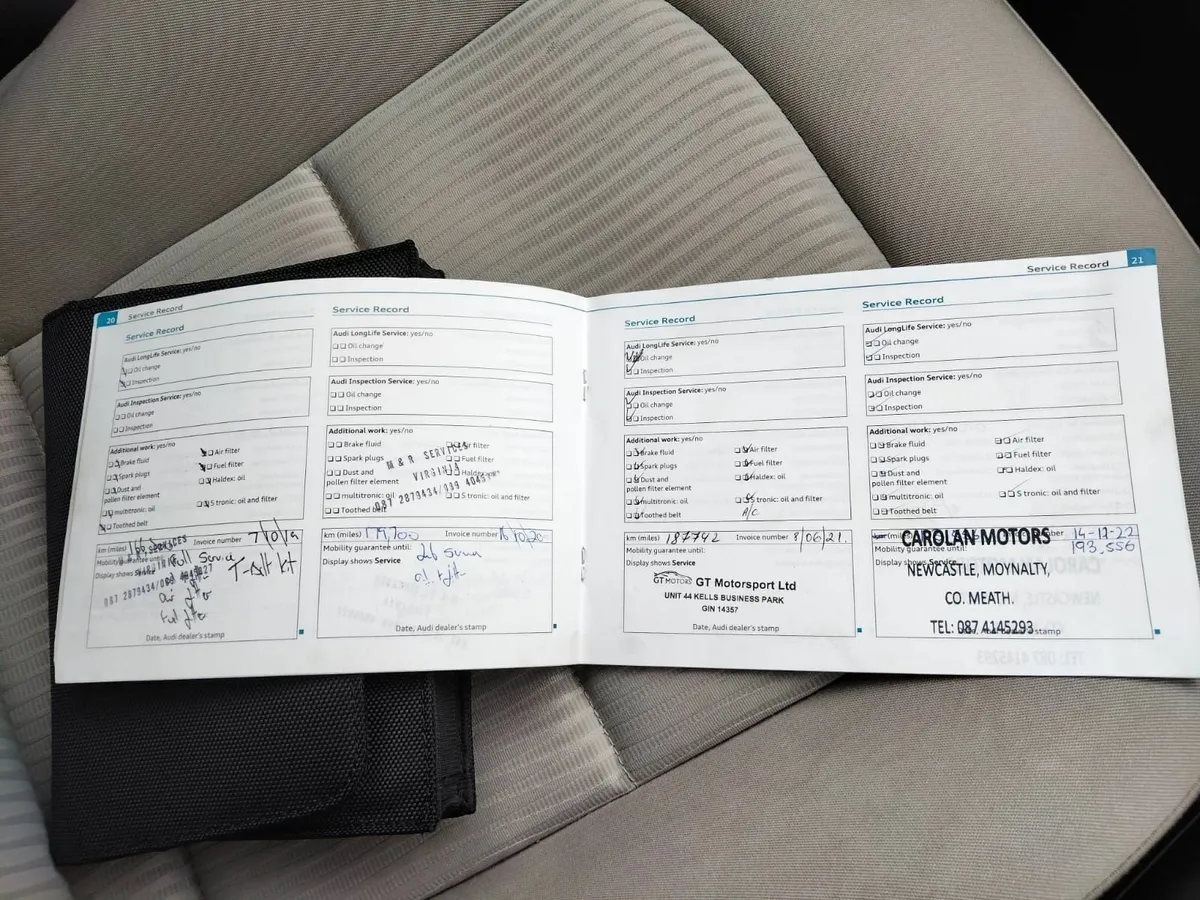 20 Service Record
Service Record
Audi LongLife Service: yes/no
Oil change
Inspection
Audi Inspection Service: yes/no
Oil change
Inspection
Additional work: yes/no
Brake fluid
Air filter
Spark plugs
Fuel filter
Dust and
pollen filter element
Haldex: oil
multitronic: oil
S tronic: oil and filter
Toothed belt
km (miles)
Invoice number
Mobility guarantee until:
Display shows Service
Full Service
T-Belt kit
087 2879434/
Date, Audi dealer's stamp
Service Record
Audi LongLife Service: yes/no
Oil change
Inspection
Audi Inspection Service: yes/no
Oil change
Inspection
Additional work: yes/no
Brake fluid
Air filter
Spark plugs
Fuel filter
Dust and
pollen filter element
Haldex: oil
multitronic: oil
S tronic: oil and filter
Toothed belt
M & R SERVICES
VIRGINIA
087 2879434/
km (miles)
Invoice number
Mobility guarantee until:
Display shows Service
Date, Audi dealer's stamp
Service Record 21
Service Record
Audi LongLife Service: yes/no
Oil change
Inspection
Audi Inspection Service: yes/no
Oil change
Inspection
Additional work: yes/no
Brake fluid
Air filter
Spark plugs
Fuel filter
Dust and
pollen filter element
Haldex: oil
multitronic: oil
S tronic: oil and filter
Toothed belt
A/C
km (miles) 187742 Invoice number 8/06/21.
Mobility guarantee until:
Display shows Service
GT MOTORS GT Motorsport Ltd
UNIT 44 KELLS BUSINESS PARK
GIN 14357
Date, Audi dealer's stamp
Service Record
Audi LongLife Service: yes/no
Oil change
Inspection
Audi Inspection Service: yes/no
Oil change
Inspection
Additional work: yes/no
Brake fluid
Air filter
Spark plugs
Fuel filter
Dust and
pollen filter element
Haldex: oil
multitronic: oil
S tronic: oil and filter
Toothed belt
14-12-22
193,556
Mobility guarantee until:
Display shows Service
CAROLAN MOTORS
NEWCASTLE, MOYNALTY,
CO. MEATH.
TEL: 087 4145293